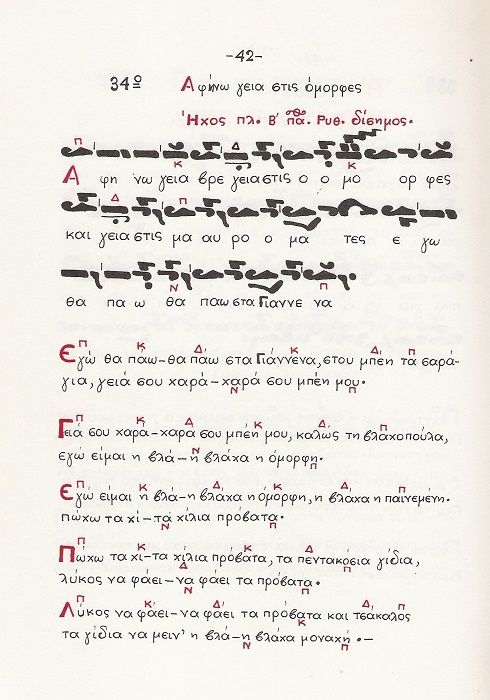 -42-
34º Αφήνω γεια στις όμορφες
Ήχος πλ. Β΄ πα. Ρυθ. δίσημος.
Α φη νω γεια βρε γεια στις ο ο μο ορ φες
και γεια στις μα αυ ρο ο μα τες ε γω
θα πα ω θα παω στα Γιαννε να
Εγώ θα πάω-θα πάω στα Γιάννενα, στου μπέη τα σαρά-
για, γειά σου χαρά-χαρά σου μπέη μου.
Γειά σου χαρά-χαρά σου μπέη μου, καλώς τη βλαχοπούλα,
εγώ είμαι η βλά-η βλάχα η όμορφη.
Εγώ είμαι η βλά-η βλάχα η όμορφη, η βλάχα η παινεμένη.
πώχω τα χί-τα χίλια πρόβατα.
Πώχω τα χί-τα χίλια πρόβατα, τα πεντακόσια γίδια,
λύκος να φάει-να φάει τα πρόβατα.
Λύκος να φάει-να φάει τα πρόβατα και τσάκαλος
τα γίδια να μειν' η βλά-η βλάχα μοναχή.-